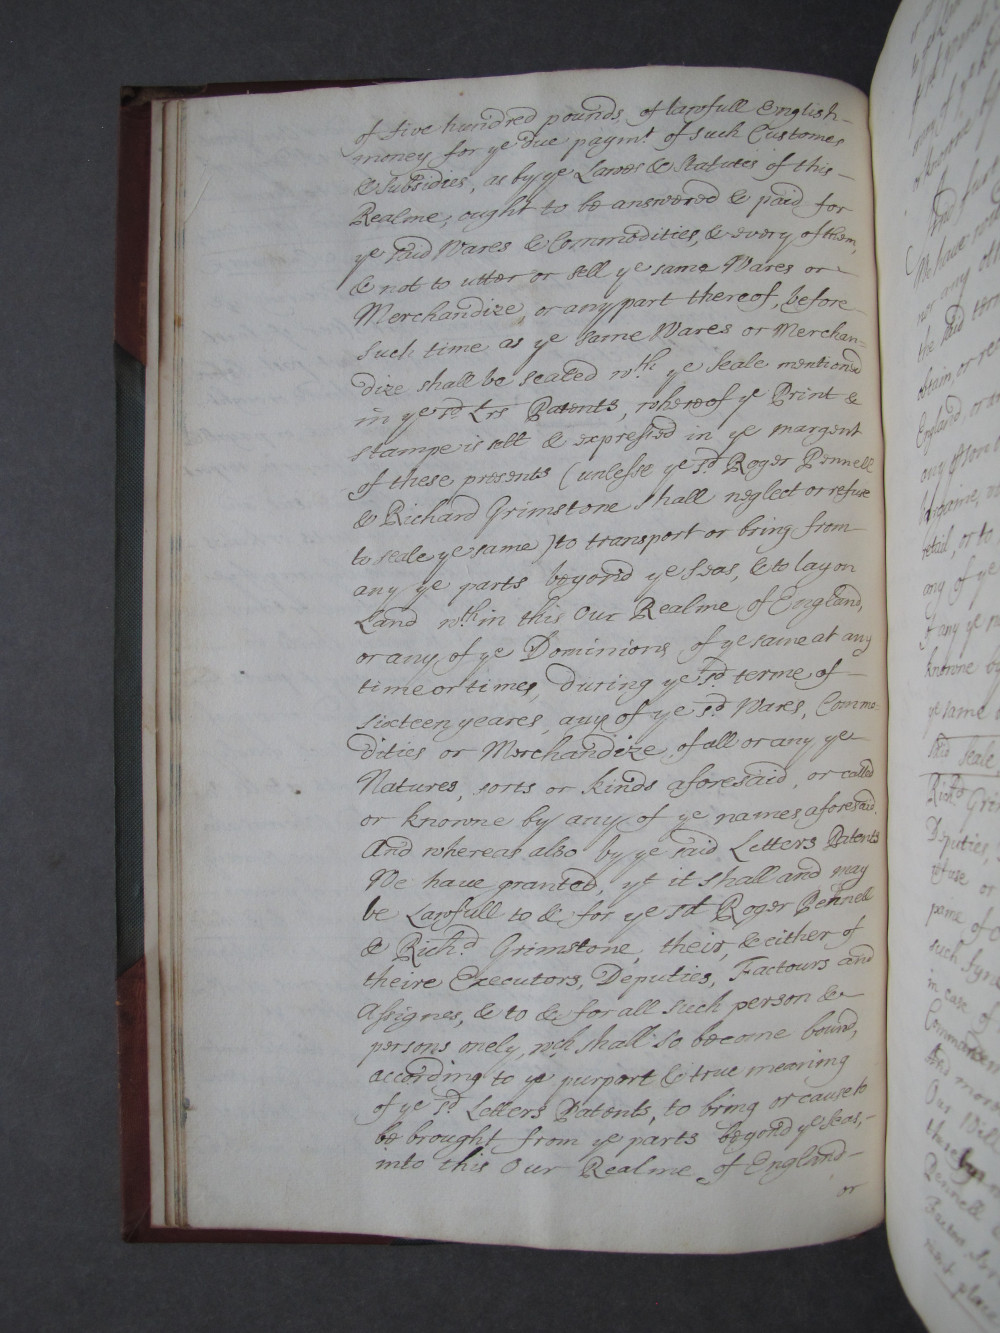 of five hundred pounds of lawfull English
money for ye due paymt. of such Customes
& Subsidies, as by ye Lawes & Statutes of this
Realme, ought to be answered & paid for
ye said Wares & Commodities, & every of them,
& not to utter or sell ye same Wares or
Merchandize, or any part thereof, before
such time as ye same Wares or Merchan=
dize shall be sealed wth. ye Seale mentioned
in ye sd. Lrs Patents, whereof ye Print &
stampe is sett & expressed in ye margent
of these presents (unlesse ye sd Roger Pennell
& Richard Grimstone shall neglect or refuse
to seale ye same) to transport or bring from
any ye parts beyond ye Seas, & to lay on
Land wth.in this Our Realme of England,
or any of ye Dominions of ye same at any
time or times, during ye sd terme of
sixteen yeares, any of ye sd Wares, Commo=
dities or Merchandize, of all or any ye
Natures, sorts or kinds aforesaid, or called
or knowne by any of ye names aforesaid.
And whereas also by ye said Letters Patents
We have granted, yt it shall and may
be Lawfull to & for ye sd Roger Pennell
& Richd. Grimstone, their, & either of
theire Executors, Deputies, Factours and
Assignes, & to & for all such person &
persons onely, wch shall so become bound,
according to ye purport & true meaning
of ye sd Letters Patents, to bring or cause to
be brought from ye parts beyond ye Seas,
into this Our Realme of England
or
We have
nor any
the said term
obtain, or
England, or
retail, or to
any of ye
knowne by
ye same
said Seale
Richd Grim
Deputies,
refuse or
paine of
such
in case of
and more
Our
Pennell